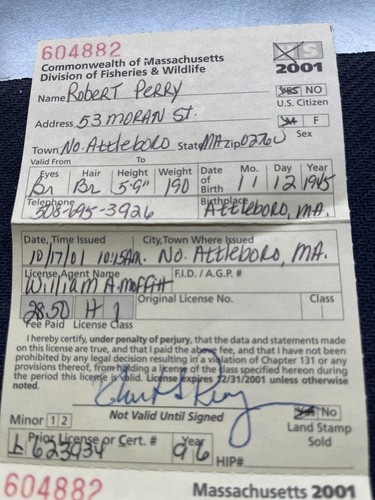 604882
Commonwealth of Massachusetts
Division of Fisheries & Wildlife
S
2001
Name Robert Perry
YES NO
U.S. Citizen
Address 53 Moran St.
M F
Sex
Town No. Attleboro State MA Zip 02760
Valid From To
Eyes Hair Height Weight Date of Birth Mo. Day Year
Br Br 5'9" 190 11 12 1945
Telephone Birthplace
508-695-3926 Attleboro, MA.
Date, Time Issued City, Town Where Issued
10/17/01 10:15AM. No. Attleboro, MA.
License Agent Name F.I.D. / A.G.P. #
William A. Moffitt
28.50 H 1 Original License No. Class
Fee Paid License Class
I hereby certify, under penalty of perjury, that the data and statements
made on this license are true, and that I paid the above fee, and that I have not been
prohibited by any legal decision resulting in a violation of Chapter 131 or any
provisions thereof, from holding a license of the class specified hereon during
the period this license is valid. License expires 12/31/2001 unless otherwise
noted.
Not Valid Until Signed
Minor 1 2
Yes No
Land Stamp
Sold
Prior License or Cert. # Year
L 623934 96 HIP#
604882 Massachusetts 2001